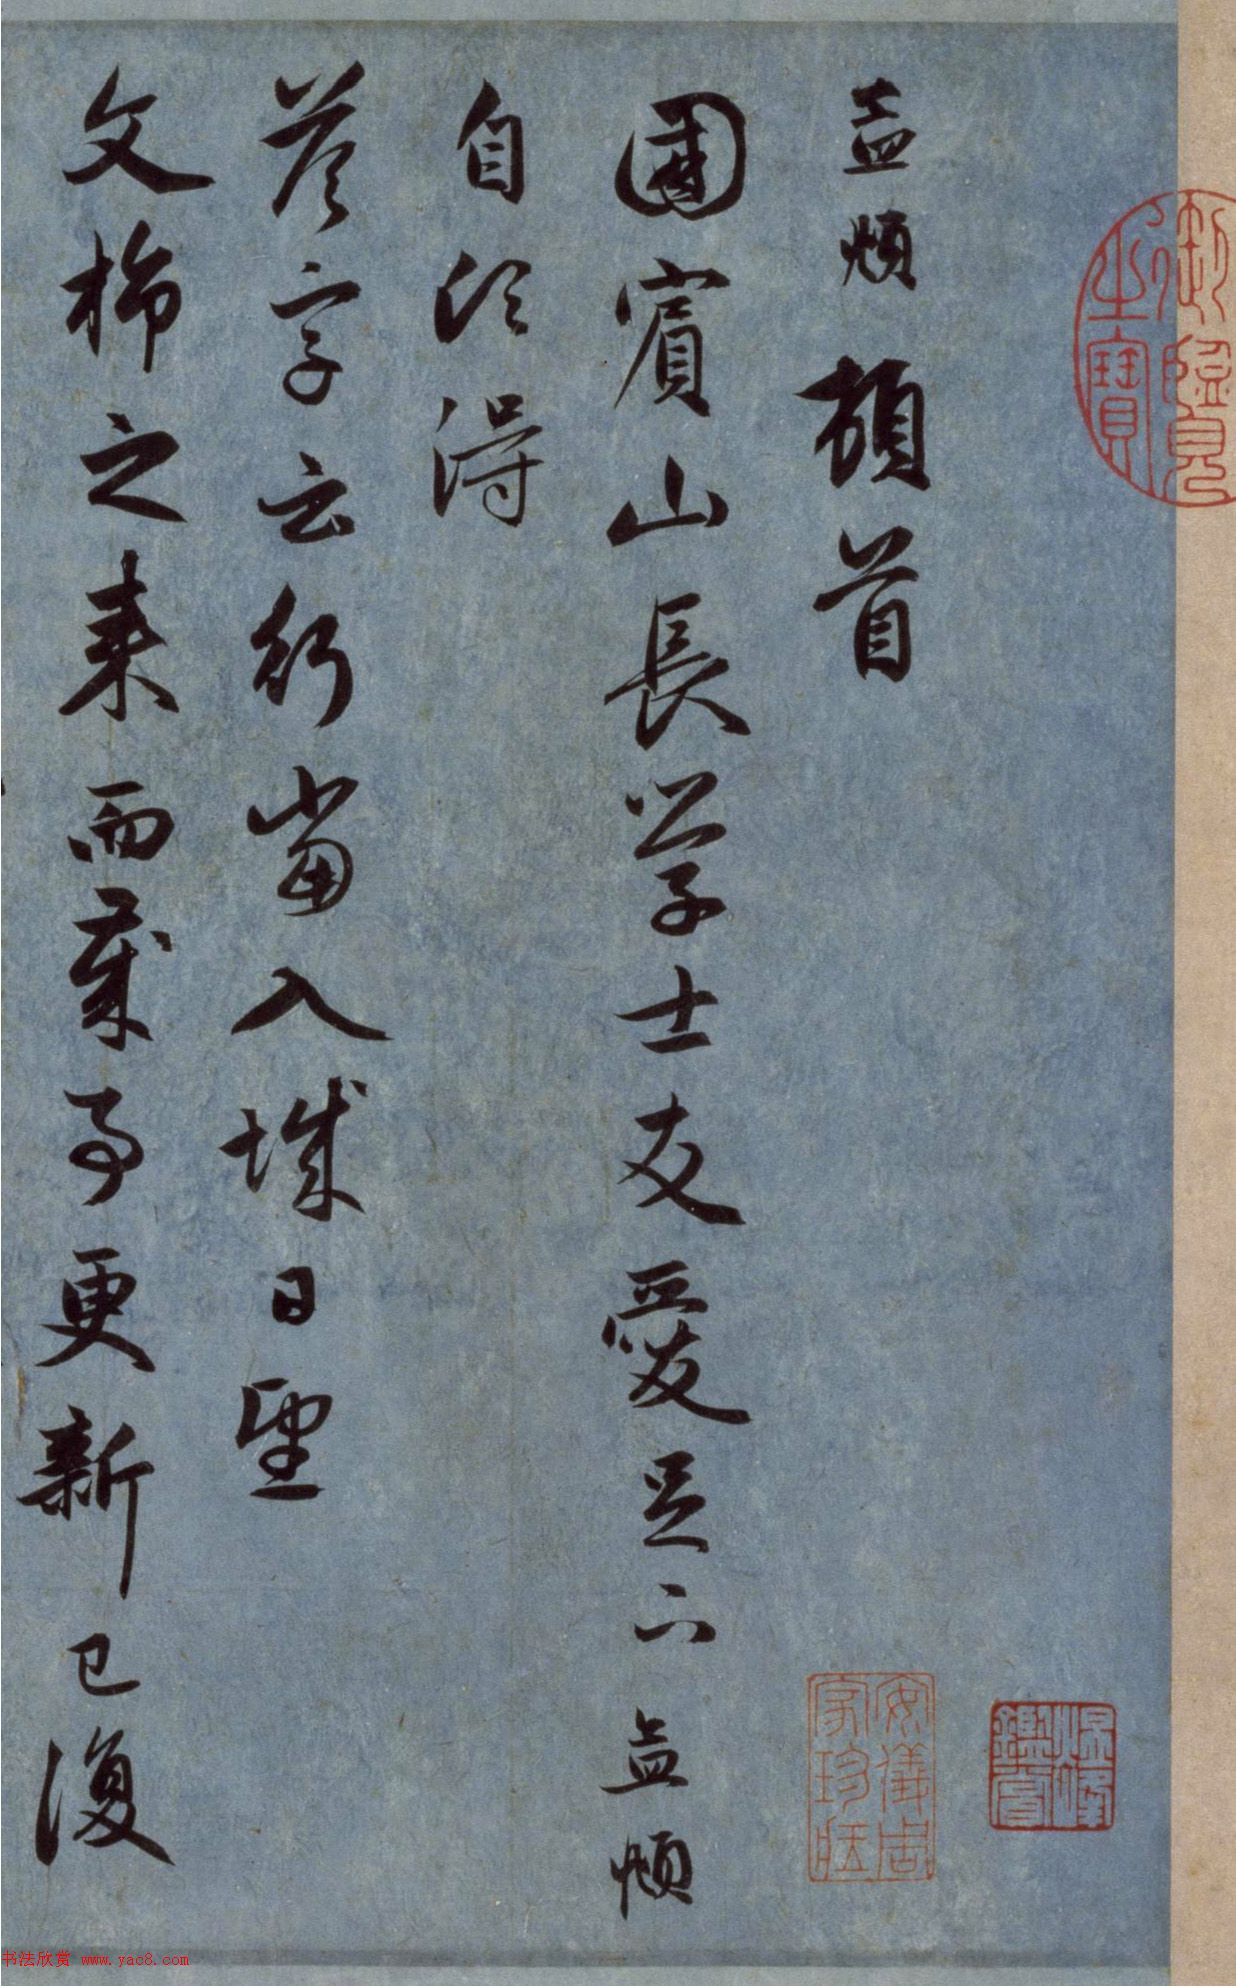 孟頫頓首
國賓山長學士友愛足下孟頫
自頃得
荅字云行當入城日望
文旆之来而歲事更新已復
御覽之寶
安儀周家珍藏
鑑賞
书法欣赏 www.yac8.com